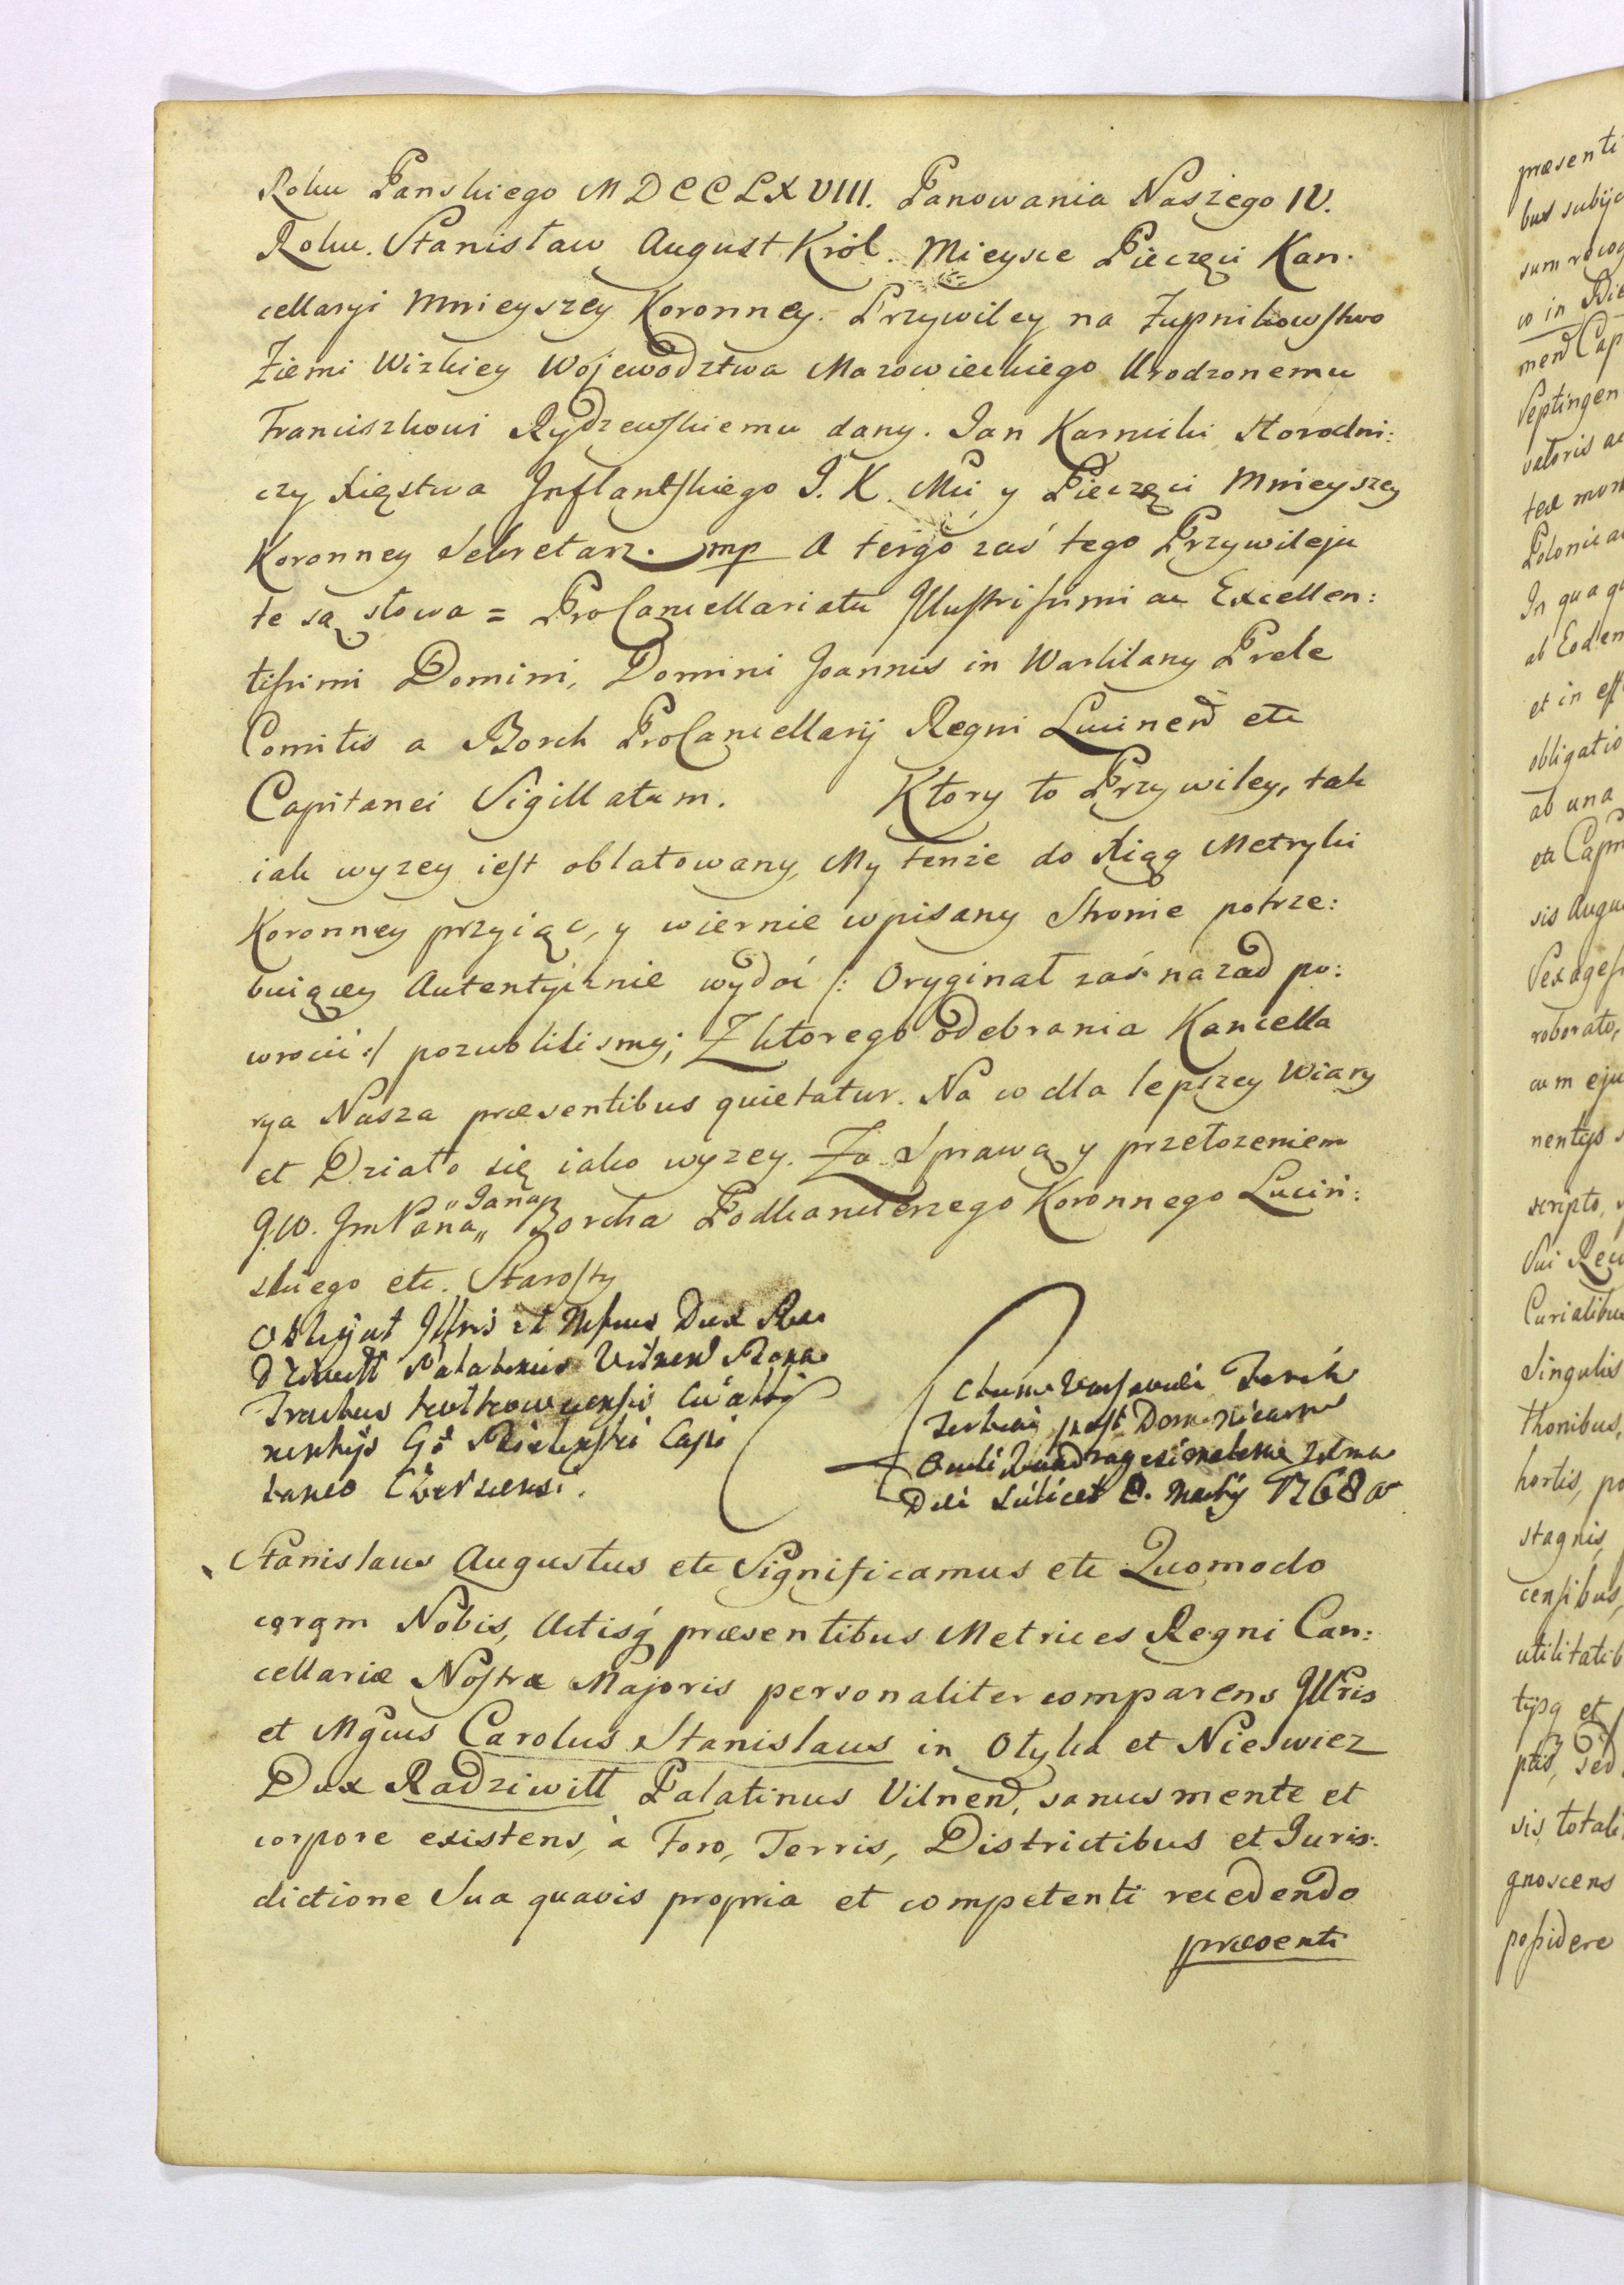 Roku Panskiego MDCCLXVIII. Panowania Naszego IV.
Roku. Stanisław August Król. Mieysce Pieczęci Kan-
cellaryi Mnieyszey Koronney. Przywiley na Żupnikowstwo
Ziemi Wizkiey Wojewodztwa Mazowieckiego Urodzonemu
Franciszkowi Rydzewskiemu dany. Jan Karnicki Horodni:
czy Xięstwa Inflantskiego J. K. Mci y Pieczęci Mnieyszey
Koronney Sekretarz. mp A tergo zaś tego Przywileju
te są słowa = ProCancellariatu Illustrissimi ac Excellen:
tissimi Domini, Domini Joannis in Warklany Prele
Comitis a Borch ProCancellarij Regni Lucinen etc
Capitanei Sigillatum. Ktory to Przywiley, tak
iak wyzey iest oblatowany, My tenże do Xiąg Metryki
Koronney przyiąć, y wiernie wpisany Stronie potrze:
buiącey Autentycznie wydać /: Oryginał zaś nazad po:
wrocić :/ pozwolilismy; Z ktorego odebrania Kancella
rya Nasza præsentibus quietatur. Na co dla lepszey Wiary
et Działo się iako wyzey. Za Sprawą y przełozeniem
J.W. Jm Pana „Jana„ Borcha Podkanclerzego Koronnego Lucin:
skiego etc. Starosty
Obligat Illris et Mgfcus Dux Ra
dziwiłł Palatinus Vilnen Bona
Tractus
nentijs Gso Bielinski Capi
taneo Czersensi.
Actum Varsaviæ Feria
Tertia post Dominicam
Oculi Quadragesimalem
Die scilicet 8. Martij 1768 a
Stanislaus Augustus etc Significamus etc Quomodo
coram Nobis, Actisq præsentibus Metrices Regni Can:
cellariæ Nostræ Majoris personaliter comparens Illris
et Mgcus Carolus Stanislaus in Ołyka et Nieswiez
Dux Radziwiłł Palatinus Vilnen, sanus mente et
corpore existens, à Foro, Terris, Districtibus et Juris:
dictione Sua quavis propria et competenti recedendo
præsenti
præsenti
bus subijc
sum recog
w in Bie
men Cap
Septingen
vatoris ac
tex mon
Poloniæ a
In qua q
ab Eodem
et in eff
obligatio
ab una
etc Capit
sis Augu
Sexagesi
roborato,
cum eju
nentijs s
scripto, s
Sui Reco
Curialibus
Singulis
thonibus,
hortis, po
stagnis,
censibus,
utilitatib
tijsq et
ptis, sed
sis totali
gnoscens
possidere